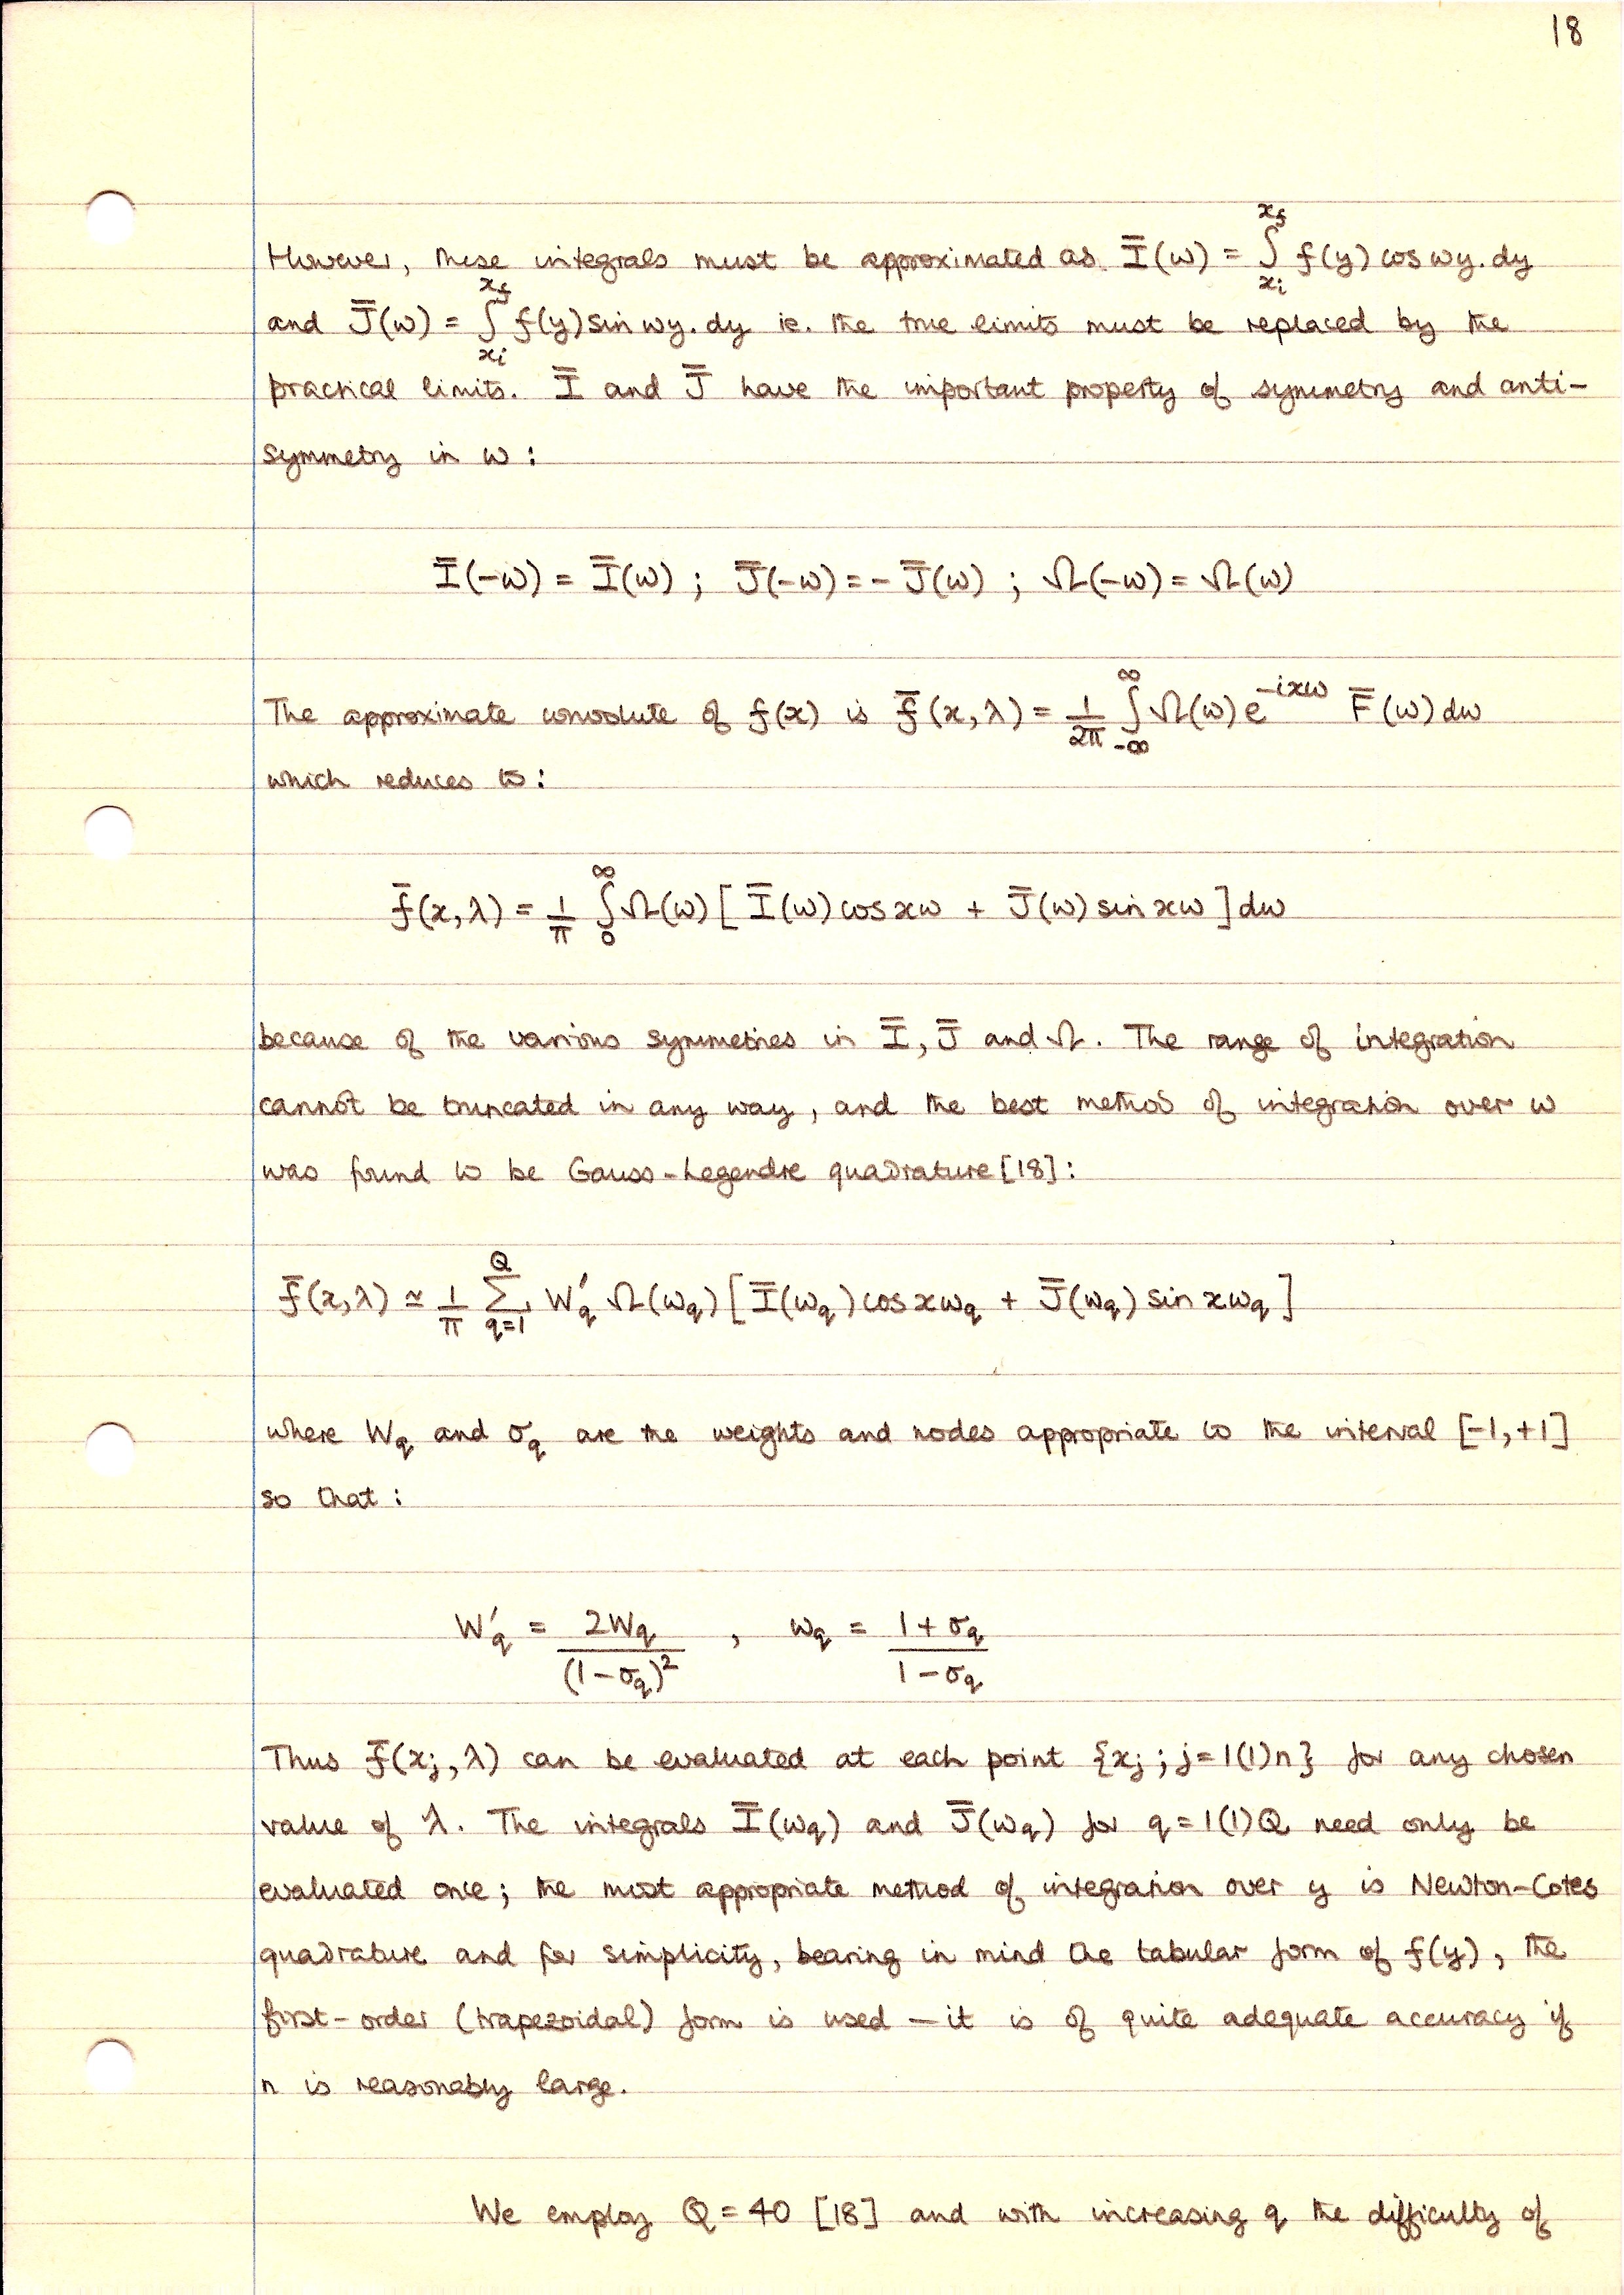 18
However, these integrals must be approximated as Ī(ω) = ∫_{xi}^{xf} f(y) cos ωy. dy
and J̄(ω) = ∫_{xi}^{xf} f(y) sin ωy. dy ie. the true limits must be replaced by the
practical limits. Ī and J̄ have the important property of symmetry and anti-
symmetry in ω :
Ī(-ω) = Ī(ω) ; J̄(-ω) = - J̄(ω) ; Ω(-ω) = Ω(ω)
The approximate convolute of f(x) is f̄(x,λ) = 1/2π ∫_{-∞}^{∞} Ω(ω) e^{-ixω} F̄(ω) dω
which reduces to :
f̄(x,λ) = 1/π ∫_0^∞ Ω(ω) [ Ī(ω) cos xω + J̄(ω) sin xω ] dω
because of the various symmetries in Ī, J̄ and Ω. The range of integration
cannot be truncated in any way, and the best method of integration over ω
was found to be Gauss-Legendre quadrature [18] :
f̄(x,λ) ≃ 1/π Σ_{q=1}^{Q} W′_q Ω(ω_q) [ Ī(ω_q) cos xω_q + J̄(ω_q) sin xω_q ]
where W_q and σ_q are the weights and nodes appropriate to the interval [-1,+1]
so that :
W′_q = 2W_q / (1-σ_q)² , ω_q = (1+σ_q) / (1-σ_q)
Thus f̄(x_j,λ) can be evaluated at each point {x_j ; j=1(1)n} for any chosen
value of λ. The integrals Ī(ω_q) and J̄(ω_q) for q=1(1)Q need only be
evaluated once; the most appropriate method of integration over y is Newton-Cotes
quadrature and for simplicity, bearing in mind the tabular form of f(y), the
first-order (trapezoidal) form is used — it is of quite adequate accuracy if
n is reasonably large.
We employ Q = 40 [18] and with increasing q the difficulty of